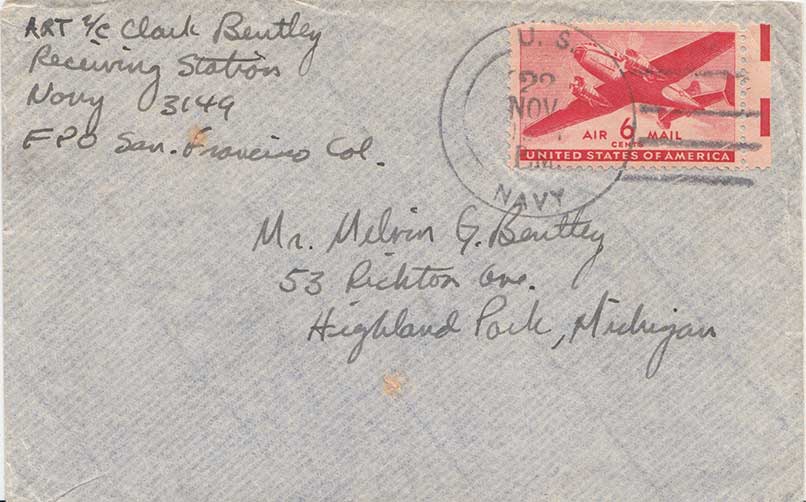 ART 2/C Clark Bentley
Receiving Station
Navy 3149
FPO San. Francisco Cal.
U. S.
22
NOV
P.M.
NAVY
AIR 6 MAIL
CENTS
UNITED STATES OF AMERICA
Mr. Melvin G. Bentley
53 Richton Ave.
Highland Park, Michigan